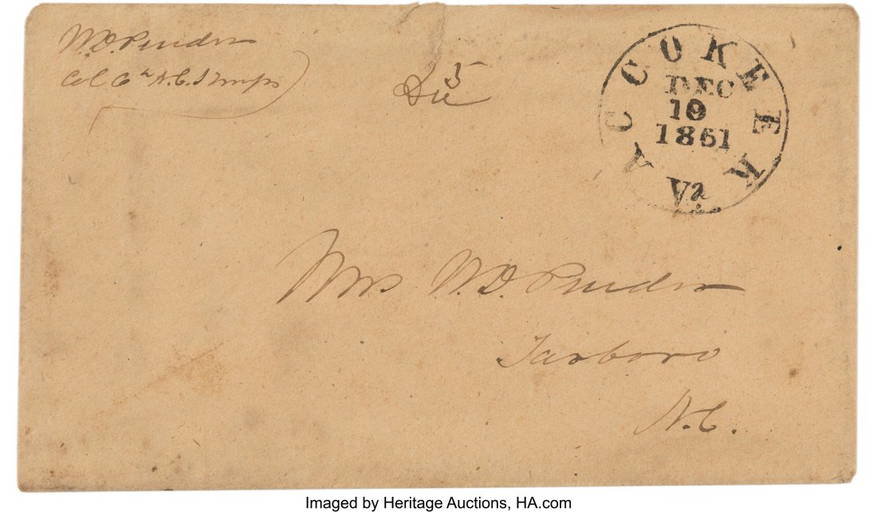 W.D. Pender
Col 6th N.C.S Troops
Due 5
ACCOKEEK
DEC
10
1861
Va
Mrs W.D. Pender
Tarboro
N.C.
Imaged by Heritage Auctions, HA.com